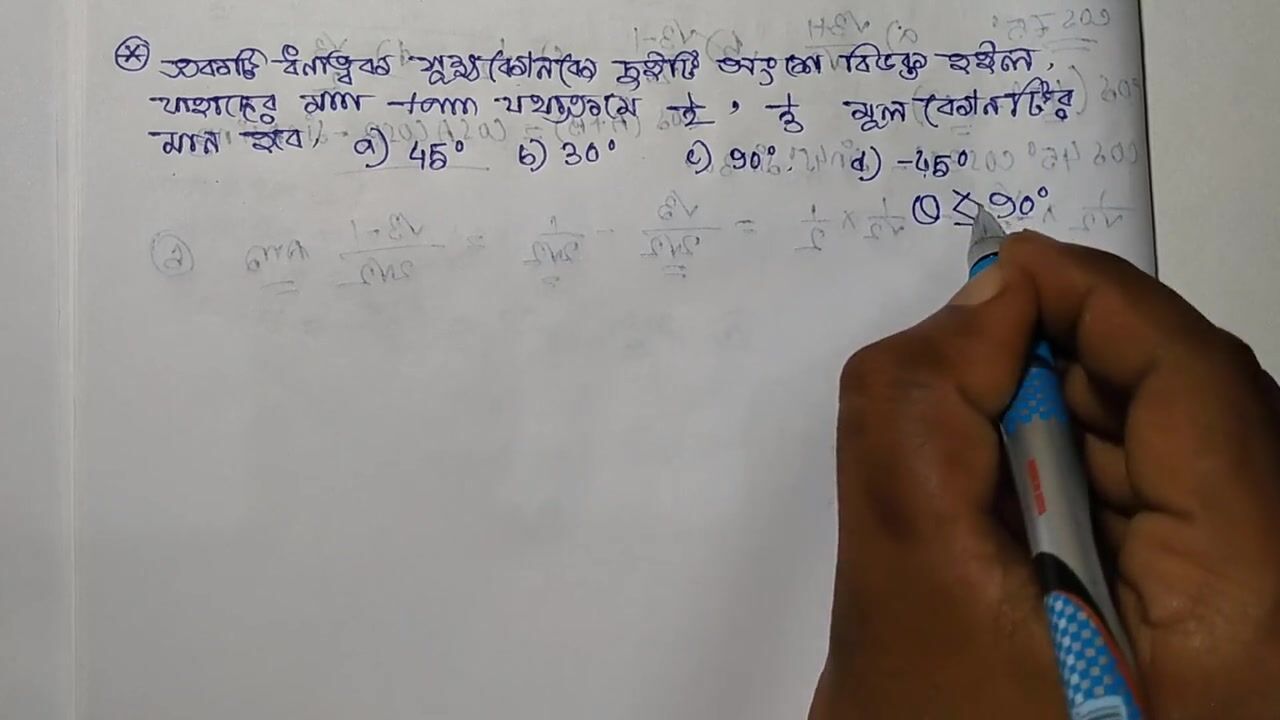 একটি ধনাত্মক সূক্ষ্মকোণকে দুইটি অংশে বিভক্ত হইল,
যাহাদের মান tan যথাক্রমে 1/2, 1/3 মূল কোণটির
মান হবে, a) 45° b) 30° c) 90° d) -45°
90°